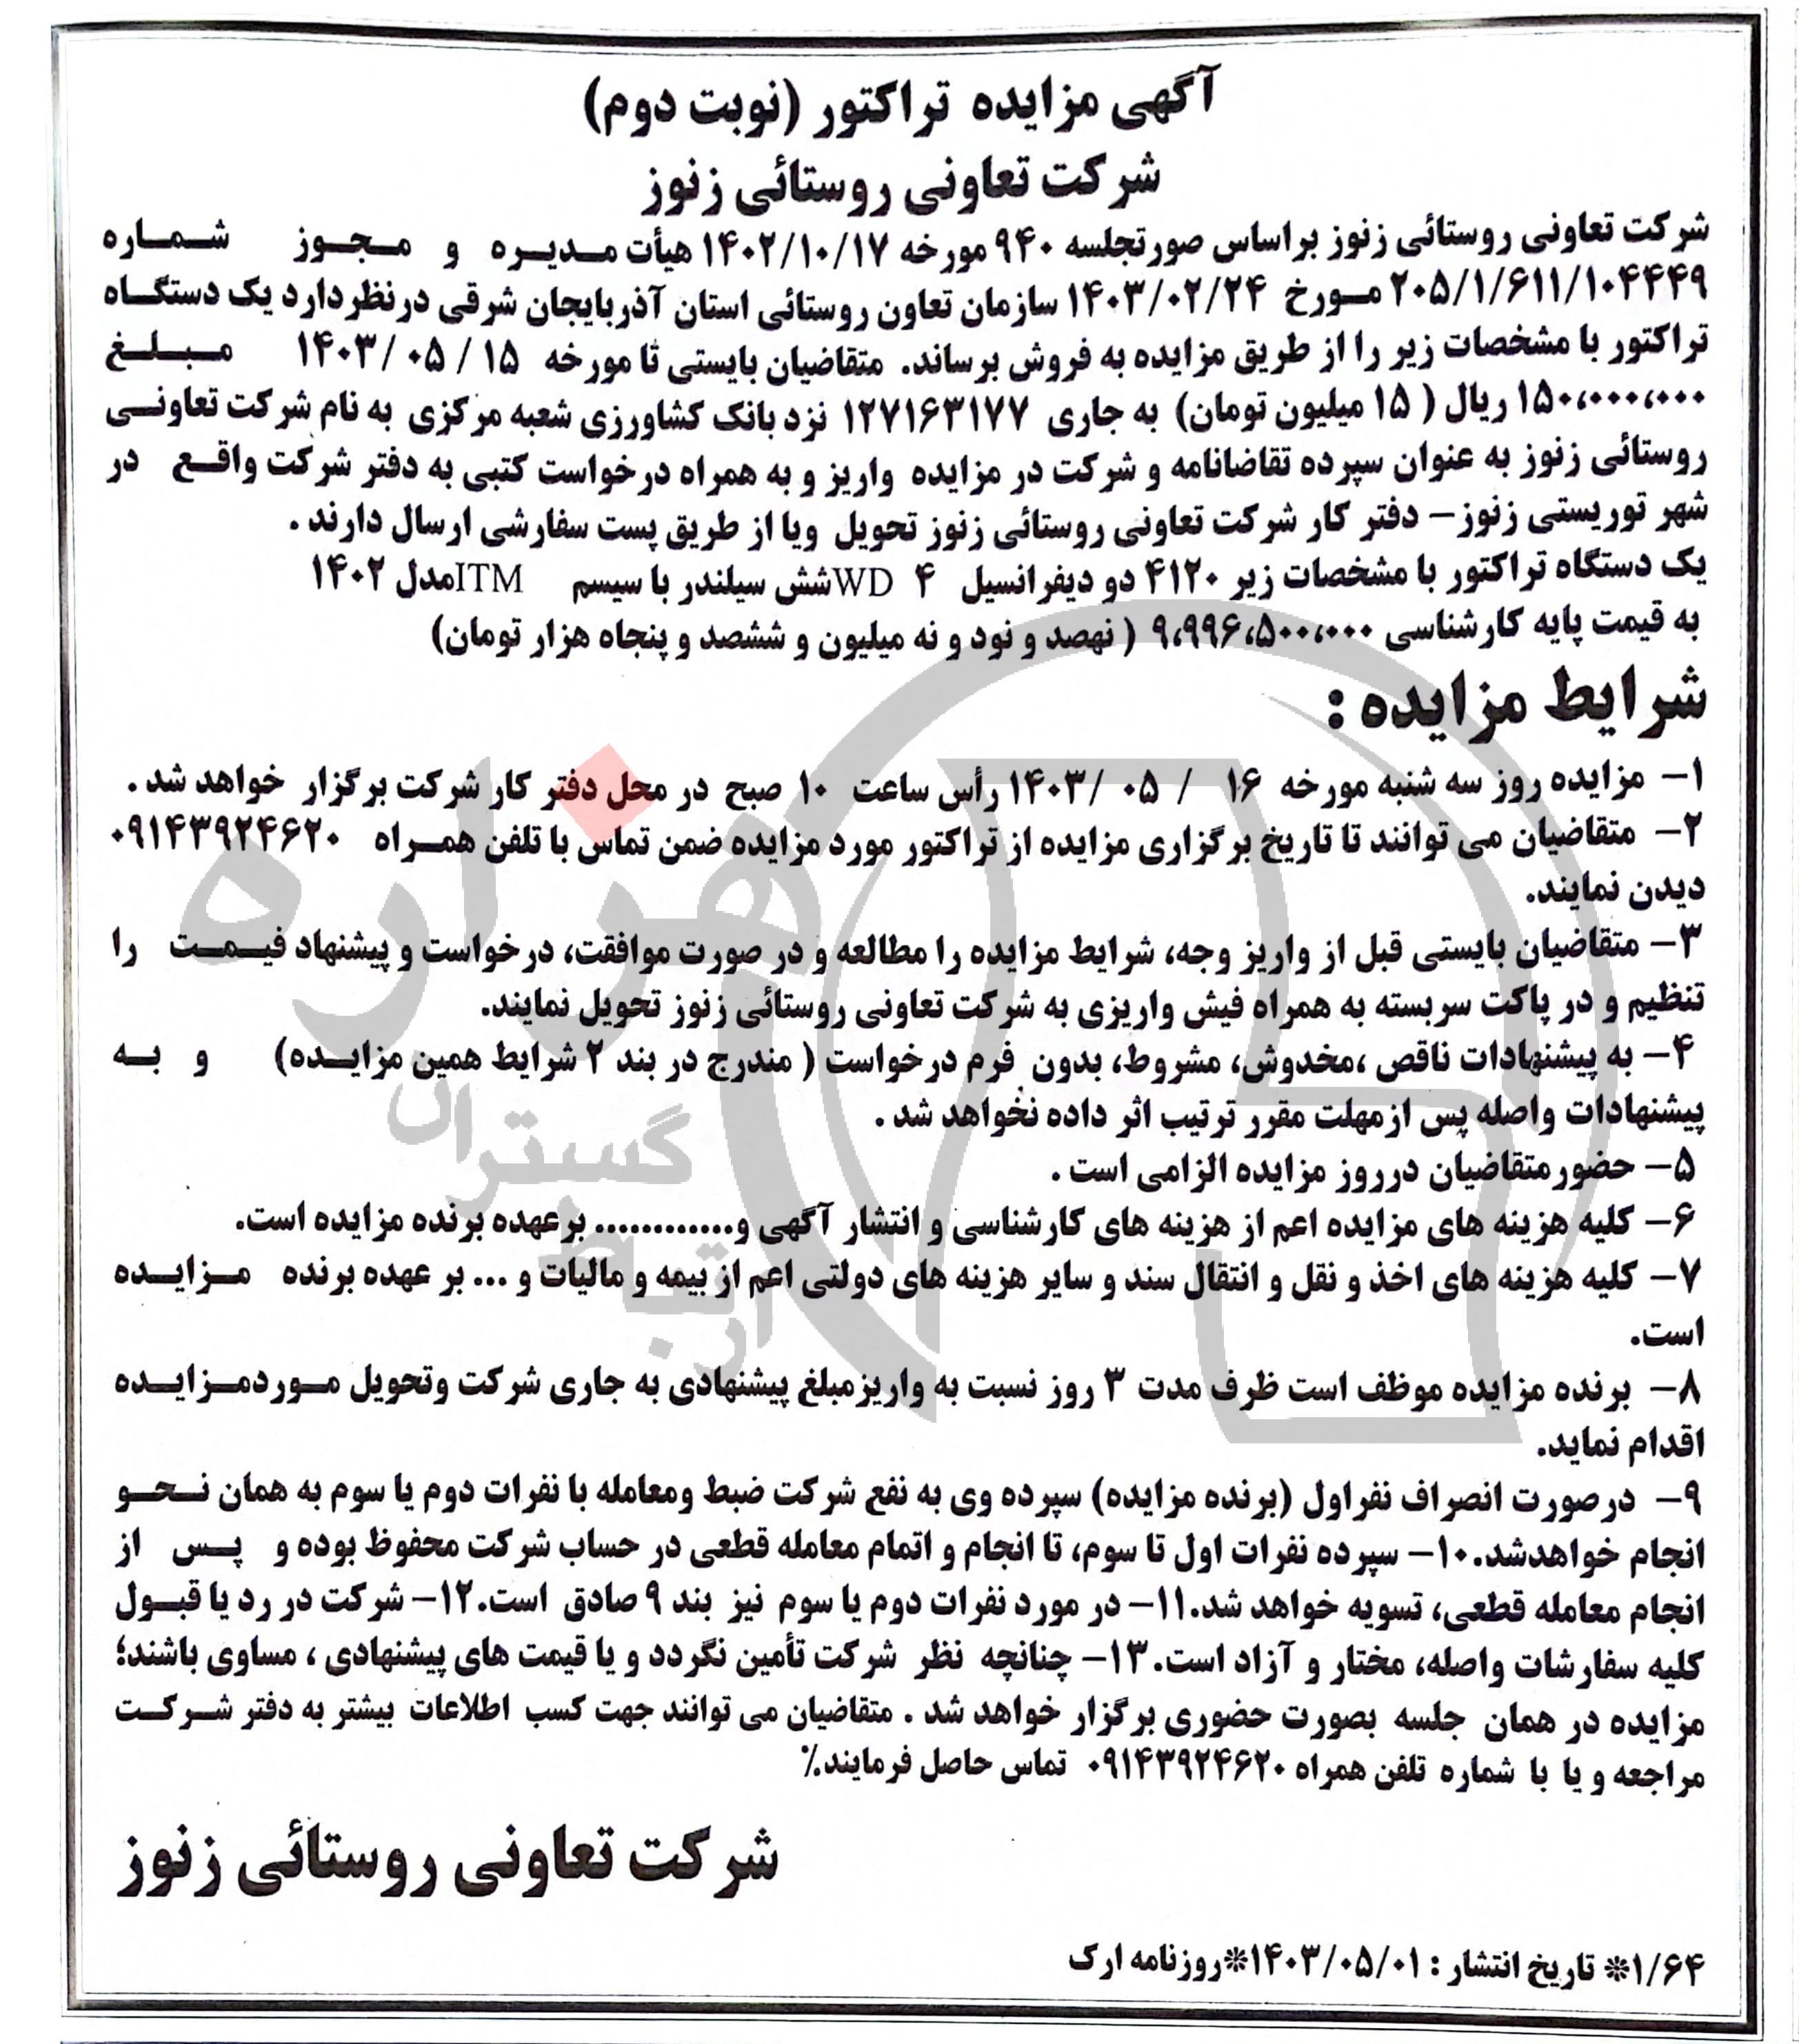 آگهی مزایده تراکتور (نوبت دوم)
شرکت تعاونی روستائی زنوز
شرکت تعاونی روستائی زنوز براساس صورتجلسه ۹۴۰ مورخه ۱۴۰۲/۱۰/۱۷ هیأت مدیره و مجوز شماره
۲۰۵/۱/۶۱۱/۱۰۴۴۴۹ مورخ ۱۴۰۳/۰۲/۲۴ سازمان تعاون روستائی استان آذربایجان شرقی درنظردارد یک دستگاه
تراکتور با مشخصات زیر را از طریق مزایده به فروش برساند. متقاضیان بایستی تا مورخه ۱۵ / ۰۵ /۱۴۰۳ مبلغ
۱۵۰،۰۰۰،۰۰۰ ریال ( ۱۵ میلیون تومان) به جاری ۱۲۷۱۶۳۱۷۷ نزد بانک کشاورزی شعبه مرکزی به نام شرکت تعاونی
روستائی زنوز به عنوان سپرده تقاضانامه و شرکت در مزایده واریز و به همراه درخواست کتبی به دفتر شرکت واقع در
شهر توریستی زنوز– دفتر کار شرکت تعاونی روستائی زنوز تحویل ویا از طریق پست سفارشی ارسال دارند .
یک دستگاه تراکتور با مشخصات زیر ۴۱۲۰ دو دیفرانسیل ۴ WDشش سیلندر با سیسم ITMمدل ۱۴۰۲
به قیمت پایه کارشناسی ۹،۹۹۶،۵۰۰،۰۰۰ ( نهصد و نود و نه میلیون و ششصد و پنجاه هزار تومان)
شرایط مزایده :
۱– مزایده روز سه شنبه مورخه ۱۶ / ۰۵ /۱۴۰۳ رأس ساعت ۱۰ صبح در محل دفتر کار شرکت برگزار خواهد شد .
۲– متقاضیان می توانند تا تاریخ برگزاری مزایده از تراکتور مورد مزایده ضمن تماس با تلفن همراه ۰۹۱۴۳۹۲۴۶۲۰
دیدن نمایند.
۳– متقاضیان بایستی قبل از واریز وجه، شرایط مزایده را مطالعه و در صورت موافقت، درخواست و پیشنهاد قیمت را
تنظیم و در پاکت سربسته به همراه فیش واریزی به شرکت تعاونی روستائی زنوز تحویل نمایند.
۴– به پیشنهادات ناقص ،مخدوش، مشروط، بدون فرم درخواست ( مندرج در بند ۲ شرایط همین مزایده) و به
پیشنهادات واصله پس ازمهلت مقرر ترتیب اثر داده نخواهد شد .
۵– حضورمتقاضیان درروز مزایده الزامی است .
۶– کلیه هزینه های مزایده اعم از هزینه های کارشناسی و انتشار آگهی و............ برعهده برنده مزایده است.
۷– کلیه هزینه های اخذ و نقل و انتقال سند و سایر هزینه های دولتی اعم از بیمه و مالیات و ... بر عهده برنده مزایده
است.
۸– برنده مزایده موظف است ظرف مدت ۳ روز نسبت به واریزمبلغ پیشنهادی به جاری شرکت وتحویل موردمزایده
اقدام نماید.
۹– درصورت انصراف نفراول (برنده مزایده) سپرده وی به نفع شرکت ضبط ومعامله با نفرات دوم یا سوم به همان نحو
انجام خواهدشد.۱۰– سپرده نفرات اول تا سوم، تا انجام و اتمام معامله قطعی در حساب شرکت محفوظ بوده و پس از
انجام معامله قطعی، تسویه خواهد شد.۱۱– در مورد نفرات دوم یا سوم نیز بند ۹ صادق است.۱۲– شرکت در رد یا قبول
کلیه سفارشات واصله، مختار و آزاد است.۱۳– چنانچه نظر شرکت تأمین نگردد و یا قیمت های پیشنهادی ، مساوی باشند؛
مزایده در همان جلسه بصورت حضوری برگزار خواهد شد . متقاضیان می توانند جهت کسب اطلاعات بیشتر به دفتر شرکت
مراجعه و یا با شماره تلفن همراه ۰۹۱۴۳۹۲۴۶۲۰ تماس حاصل فرمایند٪
شرکت تعاونی روستائی زنوز
۱/۶۴* تاریخ انتشار : ۱۴۰۳/۰۵/۰۱*روزنامه ارک
هزاره
گستران
ارتباط